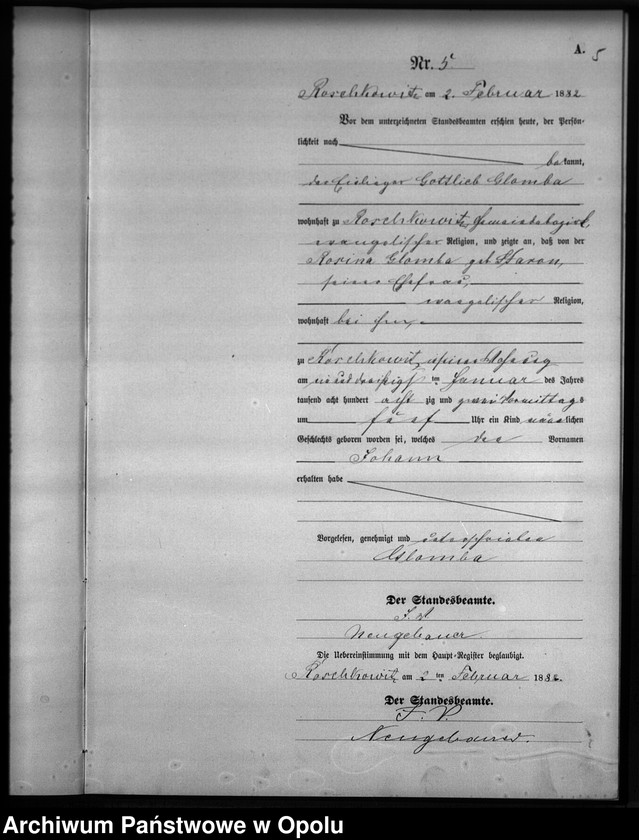 A. 5
Nr. 5
Roschkowitz am 2. Februar 1882
Vor dem unterzeichneten Standesbeamten erschien heute, der Persön-
lichkeit nach
bekannt,
der Gottlieb Glomba
wohnhaft zu Roschkowitz, Gemeindebezirk,
evangelischer Religion, und zeigte an, daß von der
Rosina Glomba geb.
seiner Ehefrau,
evangelischer Religion,
wohnhaft bei ihm,
zu Roschkowitz, seiner Wohnung
am ein und dreißigsten Januar des Jahres
tausend acht hundert achtzig und zwei Vormittags
um fünf Uhr ein Kind männlichen
Geschlechts geboren worden sei, welches den Vornamen
Johann
erhalten habe
Vorgelesen, genehmigt und unterschrieben
Glomba
Der Standesbeamte.
Neugebauer
Die Uebereinstimmung mit dem Haupt-Register beglaubigt.
Roschkowitz am 2ten Februar 1882.
Der Standesbeamte.
J. V.
Neugebauer.
Archiwum Państwowe w Opolu